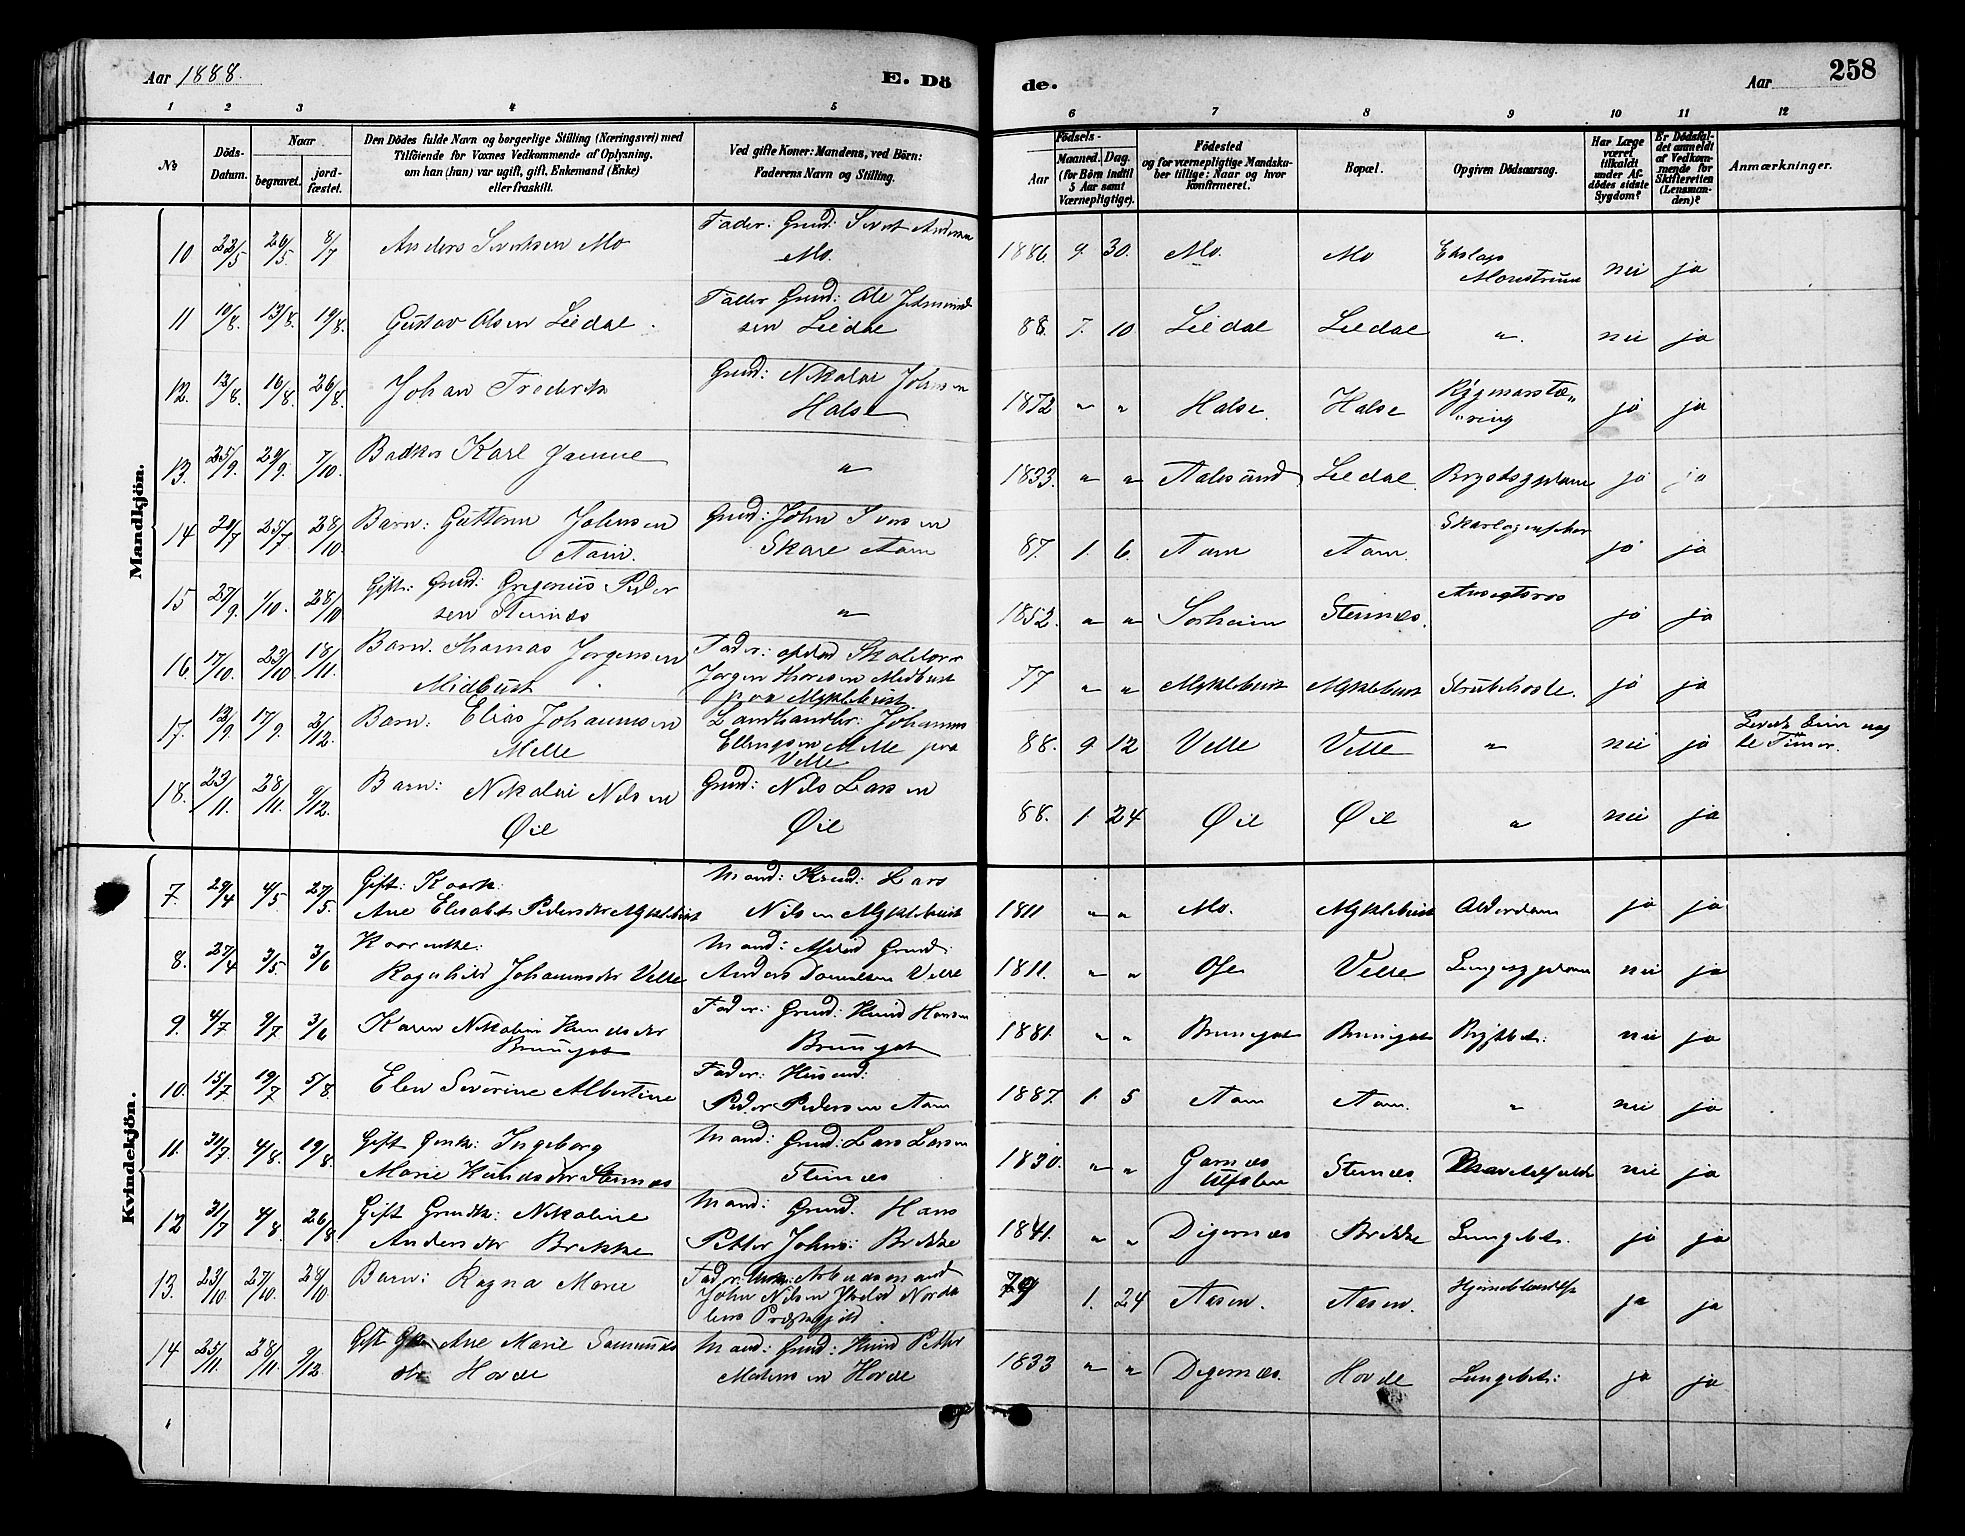 Aar 1888. E. Dö
de. Aar 258
1 2 3 4 5 6 7 8 9 10 11 12
No
Döds-Datum.
Naar
begravet.
jord-fæstet.
Den Dödes fulde Navn og borgerlige Stilling (Næringsvei) med
Tilföiende for Voxnes Vedkommende af Oplysning,
om han (hun) var ugift, gift, Enkemand (Enke)
eller fraskilt.
Ved gifte Koner: Mandens, ved Börn:
Faderens Navn og Stilling.
Födsels-
Aar
Maaned. Dag.
(for Börn indtil
5 Aar samt
Værnepligtige).
Födested
og for værnepligtige Mandska-
ber tillige: Naar og hvor
konfirmeret.
Bopæl.
Opgiven Dödsaarsag.
Har Læge
været
tilkaldt
under Af-
dödes sidste
Sygdom?
Er Dödsfal-
det anmeldt
af Vedkom-
mende for
Skifteretten
(Lensman-
den)?
Anmærkninger.
Mandkjön.
10 22/5 26/5 8/7 Anders Sivertsen Mo Fader: Grmd: Sivert Andersen
Mo. 1886. 9. 30. Mo. Mo nei ja
11 10/8. 13/8. 19/8. Gustav Olsen Leedal. Fader Grmd: Ole
sen Leedal 88. 7. 10 Leedal Leedal " nei ja
12. 12/8. 16/8. 26/8. Johan Frederik Grmd: Nikolai Johnsen
Halse 1872 " " Halse. Halse Rygmarstæ"
"ring ja ja
13. 25/9. 29/9. 7/10. Karl " 1833. " " Aalesund Leedal ja ja
14 20/7 25/7 28/10. Barn: Guttorm Johnsen
Aam. Grmd: John Iversen
Skare Aam 87. 1. 6. Aam Aam. ja ja
15 27/9. 1/10. 28/10 Gift: Grmd: Gregorius Peder
sen Steinnæs " 1852. " " Sorheim Steinnæs. ja ja
16. 17/10. 23/10 18/11. Barn. Thomas Jørgensen
Midbust Fader:
Jørgen Thoresen Midbust
paa Myklebust. 77 " " Myklebust Myklebust Strubehoste. ja ja
17. 12/9 17/9. 2/12. Barn: Elias Johannsen
Melle Landhandler: Johannes
Ellingsen Melle paa
Velle 88. 9 12 Velle Velle " nei ja
18. 23/11. 28/11. 9/12. Barn: Nikolai Nilsen
Øie Grmd: Nils Larsen
Øie 88. 1. 24 Øie Øie " nei ja
Kvindekjön.
7. 29/4 4/5 27/5. Gift: Kaark:
Ane Elisabet Pedersdtr Myklebust Mand: Lars
Nilsen Myklebust 1811 " " Mo. Myklebust Alderdom ja ja
8. 27/4 3/5. 3/6 Kaarenke:
Ragnhild Johannsdtr Velle Mand: Grmd
Anders Danielsen Velle 1811. " " Velle nei ja
9. 4/7 9/7 3/6 Karen Nikolin Knudsdtr
Brungot Fader: Grmd: Knud Hansen
Brungot 1881. " " Brungot Brungot nei ja
10. 15/7 19/7 5/8. Elen Severine Albertine Fader: Husmd:
Peder Pedersen Aam 1887. 1. 5 Aam Aam. " nei ja
11. 31/7 4/8. 19/8. Gift Gmk: Ingeborg
Marie Knudsdtr Steinnæs Mand: Grmd: Lars Larsen
Steinnæs 1830. " " Garnæs
Ulfsten Steinnæs. nei ja
12 31/7 4/8. 26/8. Gift Grmdk: Nikoline
Andersdtr Brekke Mand: Grmd. Hans
Petter Johns: Brekke 1841. " " Digernæs Brekke Lungebet. ja ja
13. 23/10. 27/10. 28/10 Barn: Ragna Marie Fader: Arbeidsmand
John Nilsen Norda
lens Præstegjeld. 79 1. 24 Aasen. Aasen. ja ja
14 25/11. 28/11. 9/12. Gift Ane Marie Samunds
dtr Hovde Mand: Grmd: Knud Petter
Hovde 1833 " " Digernæs. Hovde Lungebet: ja ja